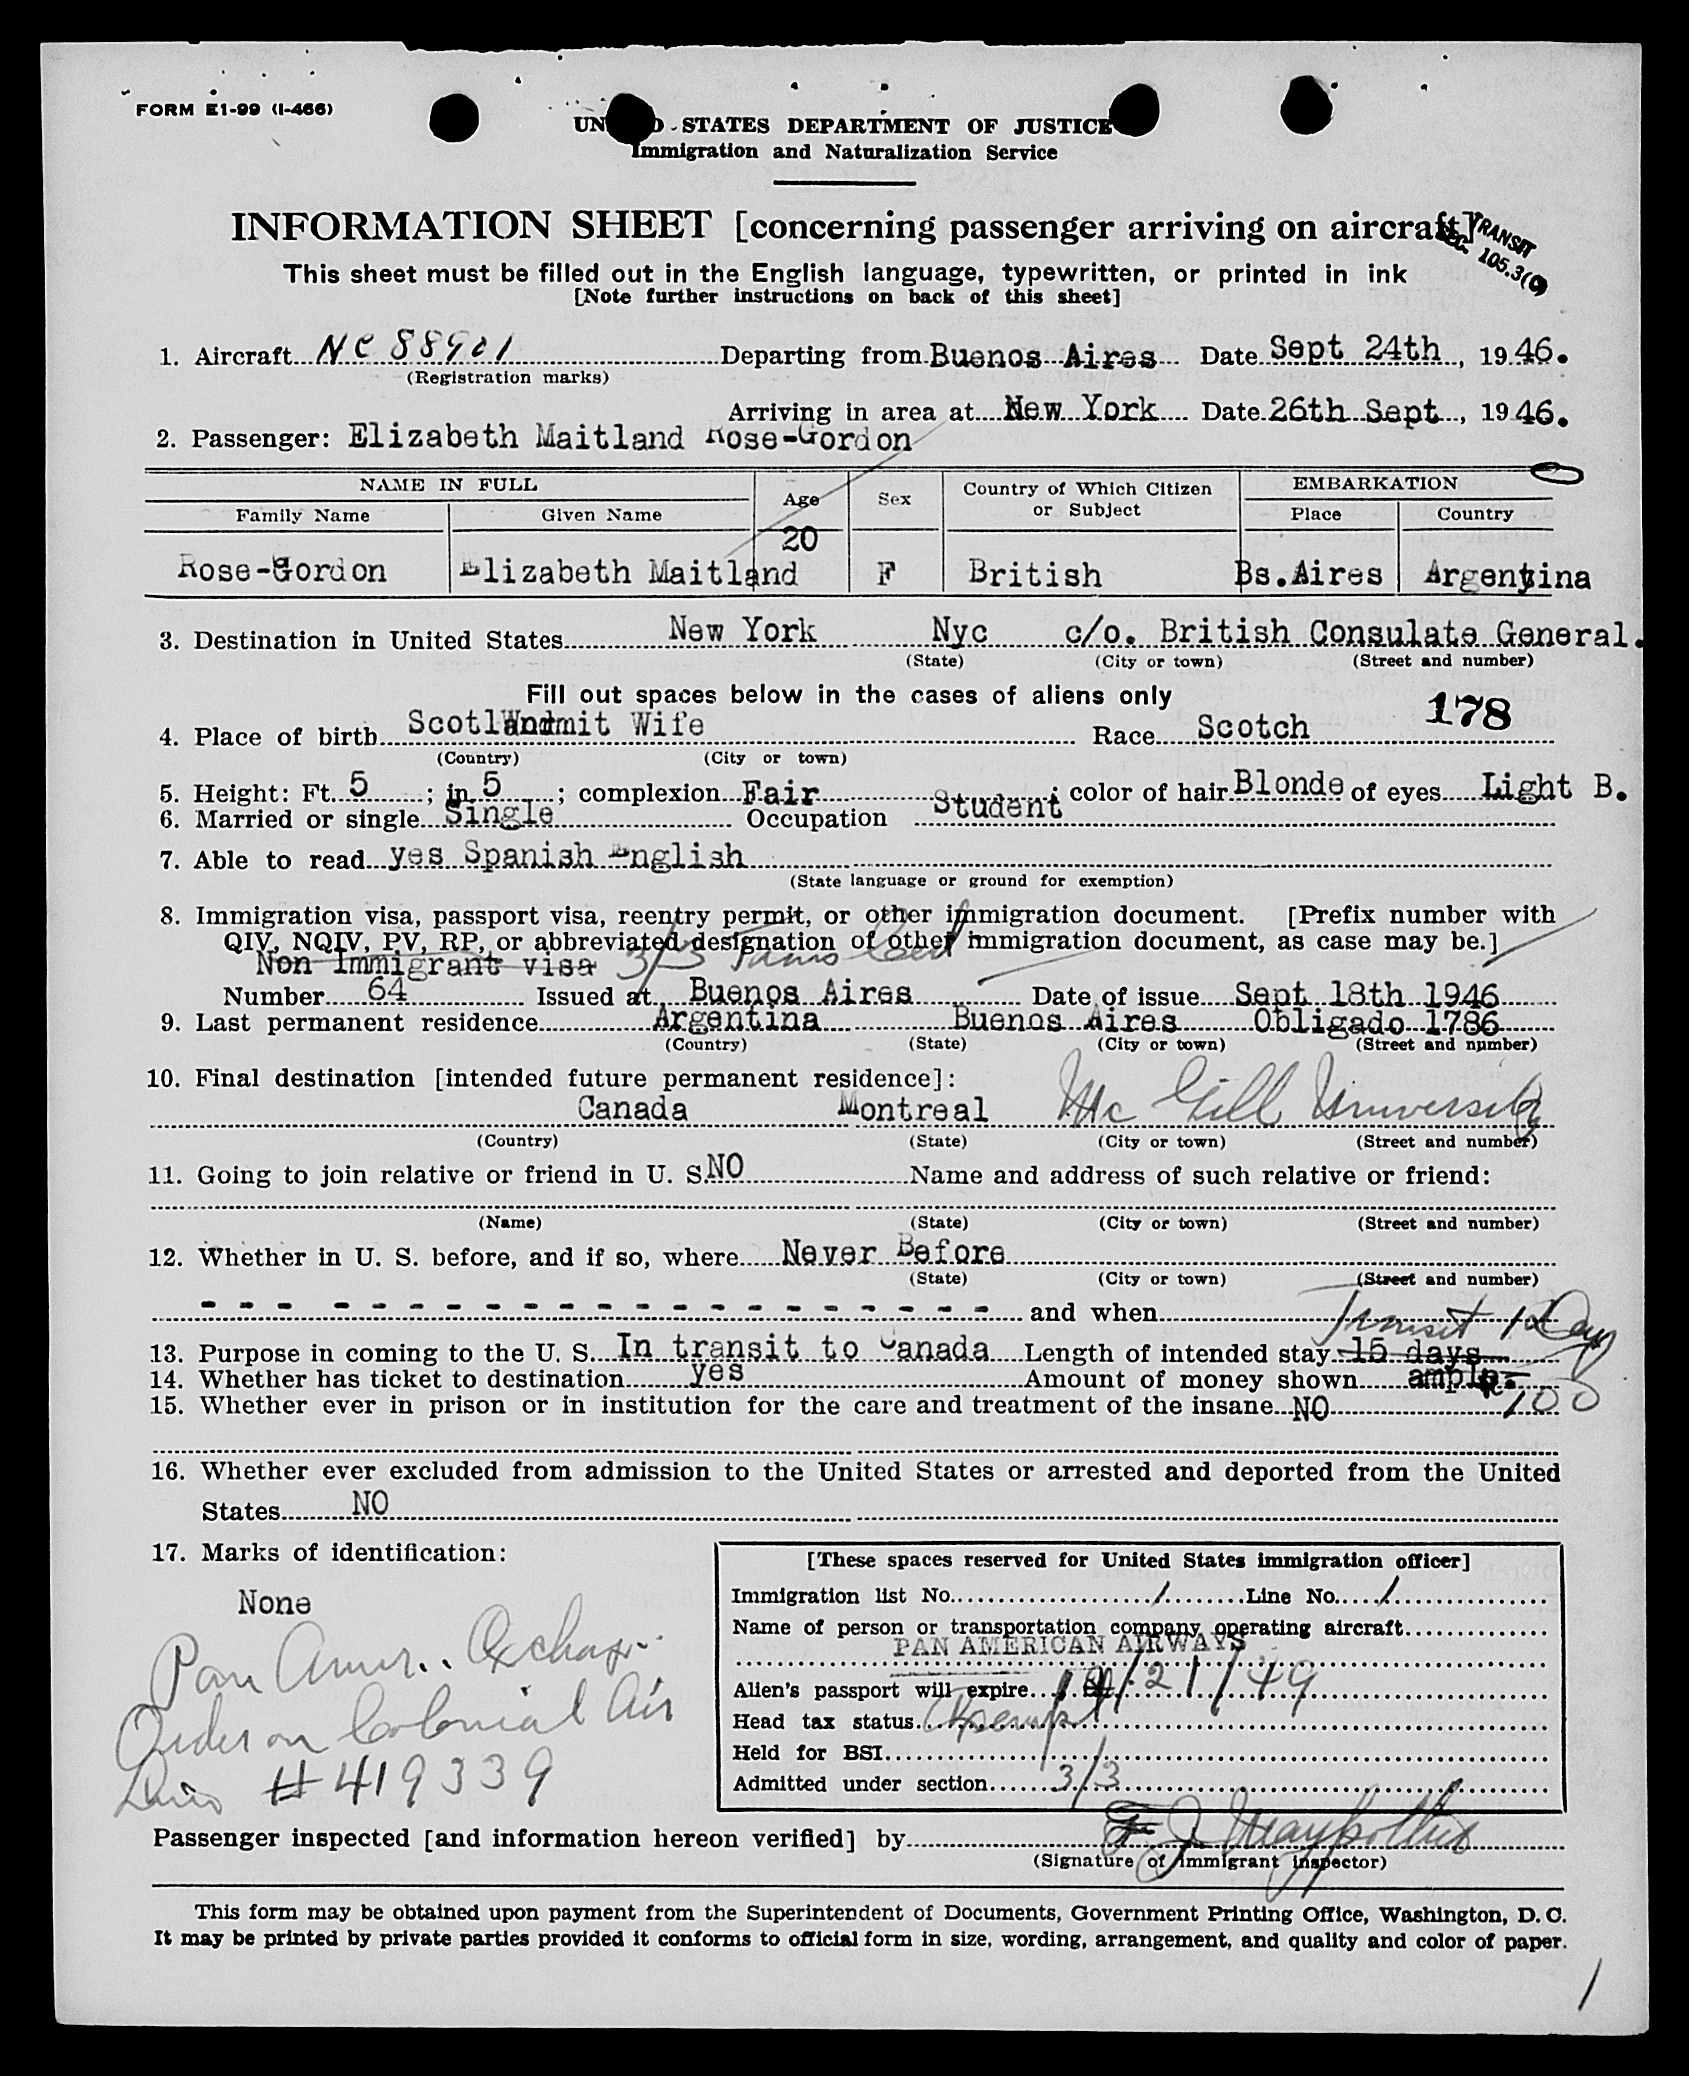 FORM E1-99 (I-466)
UN D STATES DEPARTMENT OF JUSTICE
Immigration and Naturalization Service
INFORMATION SHEET [concerning passenger arriving on aircraft]
TRANSIT
SEC. 105.3(
This sheet must be filled out in the English language, typewritten, or printed in ink
[Note further instructions on back of this sheet]
1. Aircraft NC 88901 Departing from Buenos Aires Date Sept 24th, 1946.
(Registration marks)
Arriving in area at New York Date 26th Sept, 1946.
2. Passenger: Elizabeth Maitland Rose-Gordon
NAME IN FULL Age Sex Country of Which Citizen or Subject EMBARKATION
Family Name Given Name Place Country
20
Rose-Gordon Elizabeth Maitland F British Bs.Aires Argentina
3. Destination in United States New York Nyc c/o. British Consulate General.
(State) (City or town) (Street and number)
Fill out spaces below in the cases of aliens only
178
4. Place of birth Scotland Wife Race Scotch
(Country) (City or town)
5. Height: Ft. 5; in. 5; complexion Fair; color of hair Blonde of eyes Light B.
6. Married or single Single Occupation Student
7. Able to read yes Spanish English
(State language or ground for exemption)
8. Immigration visa, passport visa, reentry permit, or other immigration document. [Prefix number with
QIV, NQIV, PV, RP, or abbreviated designation of other immigration document, as case may be.]
Non Immigrant visa 3/3 Trans Cert
Number 64 Issued at Buenos Aires Date of issue Sept 18th 1946
9. Last permanent residence Argentina Buenos Aires Obligado 1786
(Country) (State) (City or town) (Street and number)
10. Final destination [intended future permanent residece]:
Canada Montreal Mc Gill University
(Country) (State) (City or town) (Street and number)
11. Going to join relative or friend in U. S. NO Name and address of such relative or friend:
(Name) (State) (City or town) (Street and number)
12. Whether in U. S. before, and if so, where Never Before
(State) (City or town) (Street and number)
- - - - - - - - - - - - - - - - - - - - - and when
Transit 1 Day
13. Purpose in coming to the U. S. In transit to Canada Length of intended stay 15 days
14. Whether has ticket to destination yes Amount of money shown ample.
15. Whether ever in prison or in institution for the care and treatment of the insane NO 100
16. Whether ever excluded from admission to the United States or arrested and deported from the United
States NO
17. Marks of identification:
None
Pan Amer. Exchange
Order on Colonial Air
Lines # 419339
[These spaces reserved for United States immigration officer]
Immigration list No. 1 Line No. 1
Name of person or transportation company operating aircraft
PAN AMERICAN AIRWAYS
Alien's passport will expire /21/49
Head tax status Exempt
Held for BSI
Admitted under section 3/3
Passenger inspected [and information hereon verified] by
(Signature of immigrant inspector)
This form may be obtained upon payment from the Superintendent of Documents, Government Printing Office, Washington, D. C.
It may be printed by private parties provided it conforms to official form in size, wording, arrangement, and quality and color of paper.
1